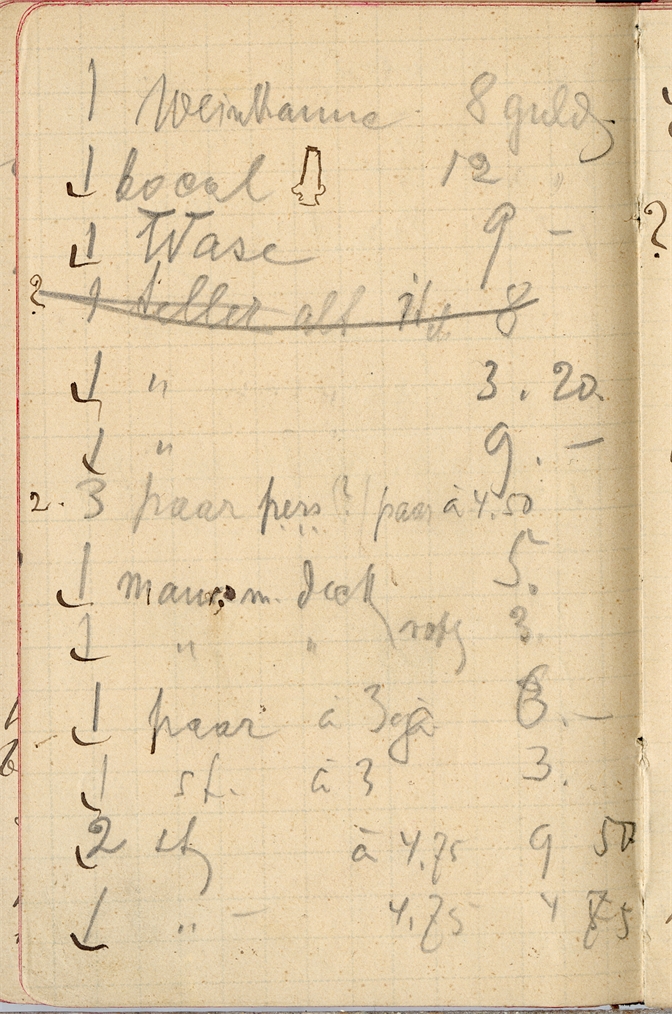 1 Weinkanne 8 guld
1 bocal 12 "
1 Wase 9 -
? 1 teller alt 8
1 " 3.20.
1 " 9.-
2. 3 paar pers (?) / paar à 4.50
1 m. 5.
1 " " 3.
1 paar à 3 6.-
1 st. à 3 3.
2 st à 4,75 9 50
1 " - 4,75 4 75
?